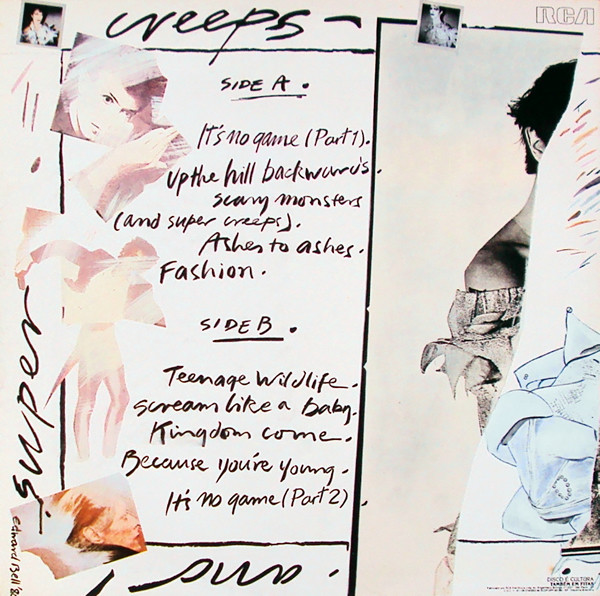 creeps -
RCA
SIDE A.
It's no game (Part 1).
Up the hill backwards.
Scary monsters
(and super creeps).
Ashes to ashes.
Fashion.
SIDE B.
Teenage Wildlife.
Scream like a baby.
Kingdom come.
Because you're young.
It's no game (Part 2).
super
and.
Edward Bell '80
DISCO É CULTURA
TAMBÉM EM FITAS